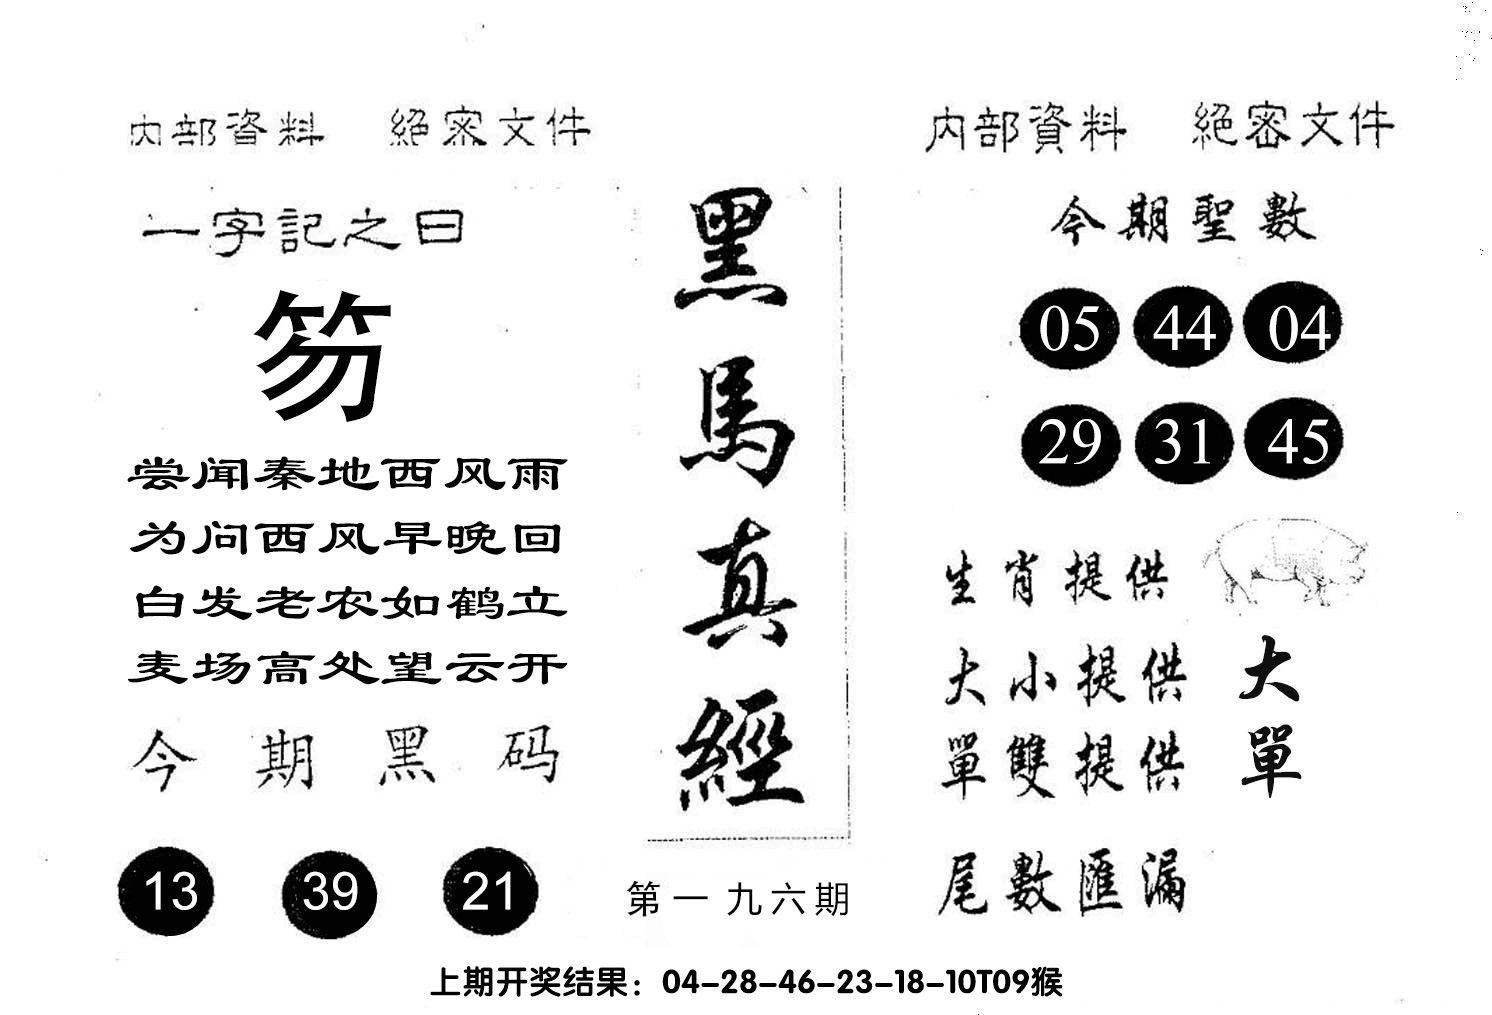 内部資料 絕密文件
一字記之曰
笏
尝闻秦地西风雨
为问西风早晚回
白发老农如鹤立
麦场高处望云开
今期黑码
13 39 21
黑馬真經
第一九六期
内部資料 絕密文件
今期聖數
05 44 04
29 31 45
生肖提供
大小提供 大
單雙提供 單
尾數匯漏
上期开奖结果：04-28-46-23-18-10T09猴